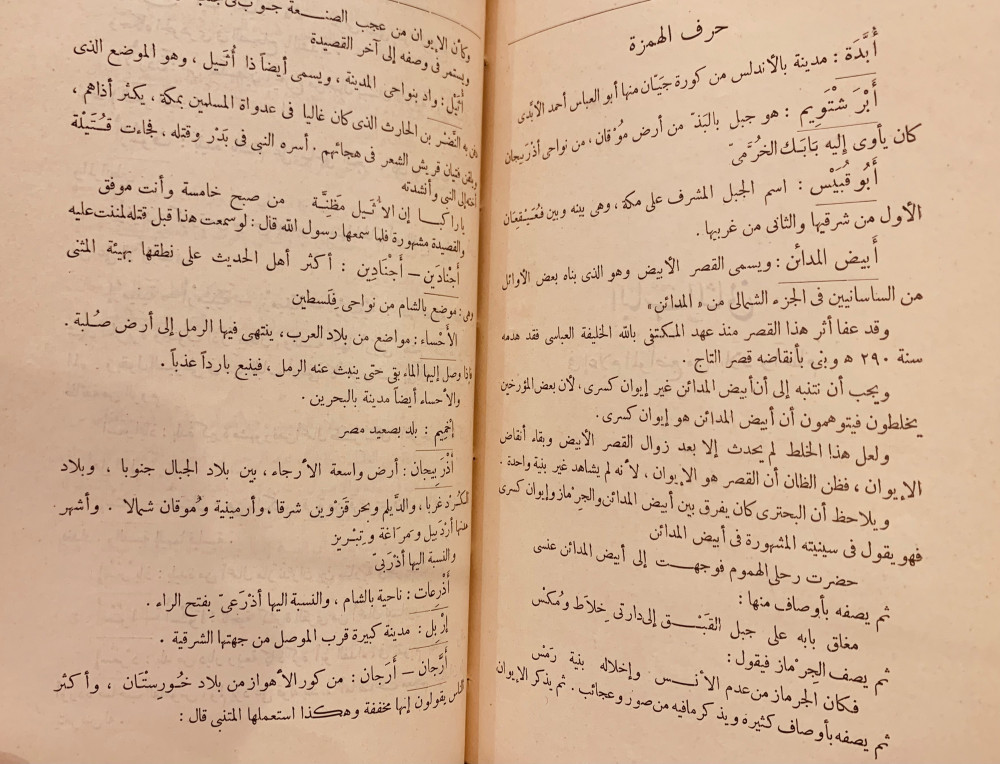 حرف الهمزة
أُبَّدَة : مدينة بالأندلس من كورة جَيّان منها أبو العباس أحمد الأبَّدى
أَبْرَ شَتْوِيم : هو جبل بالبَذّ من أرض مُوْقان ، من نواحى أذْرَبيجان
كان يأوى إليه بَابَك الخُرَّمىّ
أَبُو قُبَيْس : اسم الجبل المشرف على مكة ، وهى بينه وبين قُعَيْقِعَان
الأول من شرقيها والثانى من غربيها .
أَبيض المدائن : ويسمى القصر الأبيض وهو الذى بناه بعض الأوائل
من الساسانيين فى الجزء الشمالى من « المدائن »
وقد عفا أثر هذا القصر منذ عهد المكتفى بالله الخليفة العباسى فقد هدمه
سنة ٢٩٠ ه وبنى بأنقاضه قصر التاج .
ويجب أن نتنبه إلى أن أبيض المدائن غير إيوان كسرى ، لأن بعض المؤرخين
يخلطون فيتوهمون أن أبيض المدائن هو إيوان كسرى .
ولعل هذا الخلط لم يحدث إلا بعد زوال القصر الأبيض وبقاء أنقاض
الإيوان ، فظن الظان أن القصر هو الإيوان ، لأنه لم يشاهد غير بنية واحدة .
ويلاحظ أن البحترى كان يفرق بين أبيض المدائن والجرماز وإيوان كسرى
فهو يقول فى سينيته المشهورة فى أبيض المدائن
حضرت رحلى الهموم فوجهت إلى أبيض المدائن عنسى
ثم يصفه بأوصاف منها :
مغلق بابه على جبل القَبْق إلى دارتى خِلَاط ومُكْس
ثم يصف الجرماز فيقول :
فكأن الجرماز من عدم الأنس وإخلاله بنية رَمْس
ثم يصفه بأوصاف كثيرة ويذكر مافيه من صور وعجائب . ثم يذكر الإيوان
وكأن الإيوان من عجب الصنعة جوب فى
ويستمر فى وصفه إلى آخر القصيدة
أُثَيْل : واد بنواحى المدينة ، ويسمى أيضاً ذا أُثَيل ، وهو الموضع الذى
به النَّضْر بن الحارث الذى كان غاليا فى عدواة المسلمين بمكة ، يكثر أذاهم ،
ويلقن فتيان قريش الشعر فى هجائهم . أسره النبى فى بَدْر وقتله ، فجاءت قُتَيْلة
أخته إلى النبى وأنشدته
ياراكبا إن الأثيل مظِنَّة من صبح خامسة وأنت موفق
والقصيدة مشهورة فلما سمعها رسول الله قال : لو سمعت هذا قبل قتله لمننت عليه
أَجْنادَين – أَجْنَادِين : أكثر أهل الحديث على نطقها بهيئة المثنى
وهى : موضع بالشام من نواحى فِلَسطين
الأَحْساء : مواضع من بلاد العرب ، ينتهى فيها الرمل إلى أرض صُلبة .
فإذا وصل إليها الماء بقى حتى ينبث عنه الرمل ، فينبع بارداً عذباً .
والأحساء أيضاً مدينة بالبحرين .
إخْمِيم : بلد بصعيد مصر
أَذْرَبيجان : أرض واسعة الأرجاء ، بين بلاد الجبال جنوبا ، وبلاد
الكُرْد غربا ، والدَّيلم وبحر قَزْوين شرقا ، وأرمينية ومُوقان شمالا . وأشهر
مدنها أَرْدَبيل ومَرَاغَة وتِبْريز
والنسبة إليها أذْرَبىّ
أَذْرِعات : ناحية بالشام ، والنسبة اليها أذْرَعىّ بفتح الراء .
إرْبِل : مدينة كبيرة قرب الموصل من جهتها الشرقية .
أَرَّجان – أَرَجان : من كور الأهواز من بلاد خُوزِسْتَان ، وأكثر
الناس يقولون إنها مخففة وهكذا استعملها المتنبى قال :